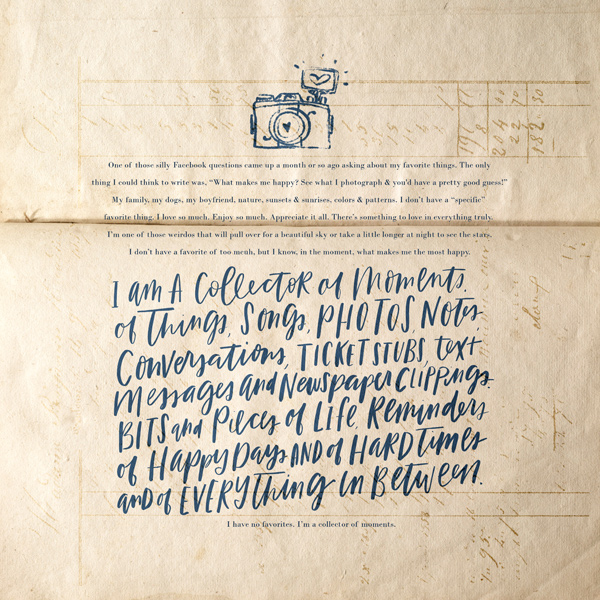 One of those silly Facebook questions came up a month or so ago asking about my favorite things. The only
thing I could think to write was, "What makes me happy? See what I photograph & you'd have a pretty good guess!"
My family, my dogs, my boyfriend, nature, sunsets & sunrises, colors & patterns. I don't have a "specific"
favorite thing. I love so much. Enjoy so much. Appreciate it all. There's something to love in everything truly.
I'm one of those weirdos that will pull over for a beautiful sky or take a little longer at night to see the stars.
I don't have a favorite of too much, but I know, in the moment, what makes me the most happy.
I am A Collector of Moments.
of Things, Songs, PHOTOS, Notes.
Conversations, TICKET STUBS, text
Messages and Newspaper Clippings.
BITS and Pieces of LIFE. Reminders
of Happy Days AND of HARD times
and of EVERYthing in Between.
I have no favorites. I'm a collector of moments.